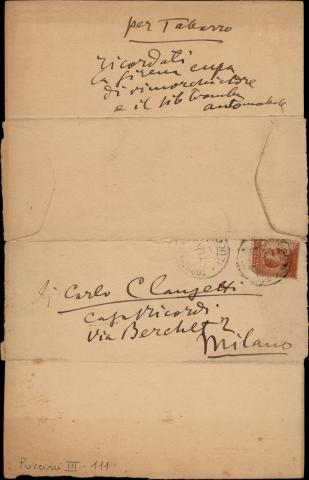 per Tabarro
ricordati
la sirena cupa
di rimorchiatore
e il sib tromba
automobile
Carlo Clausetti
Casa Ricordi
Via Berchet 2
Milano
Puccini III - 111